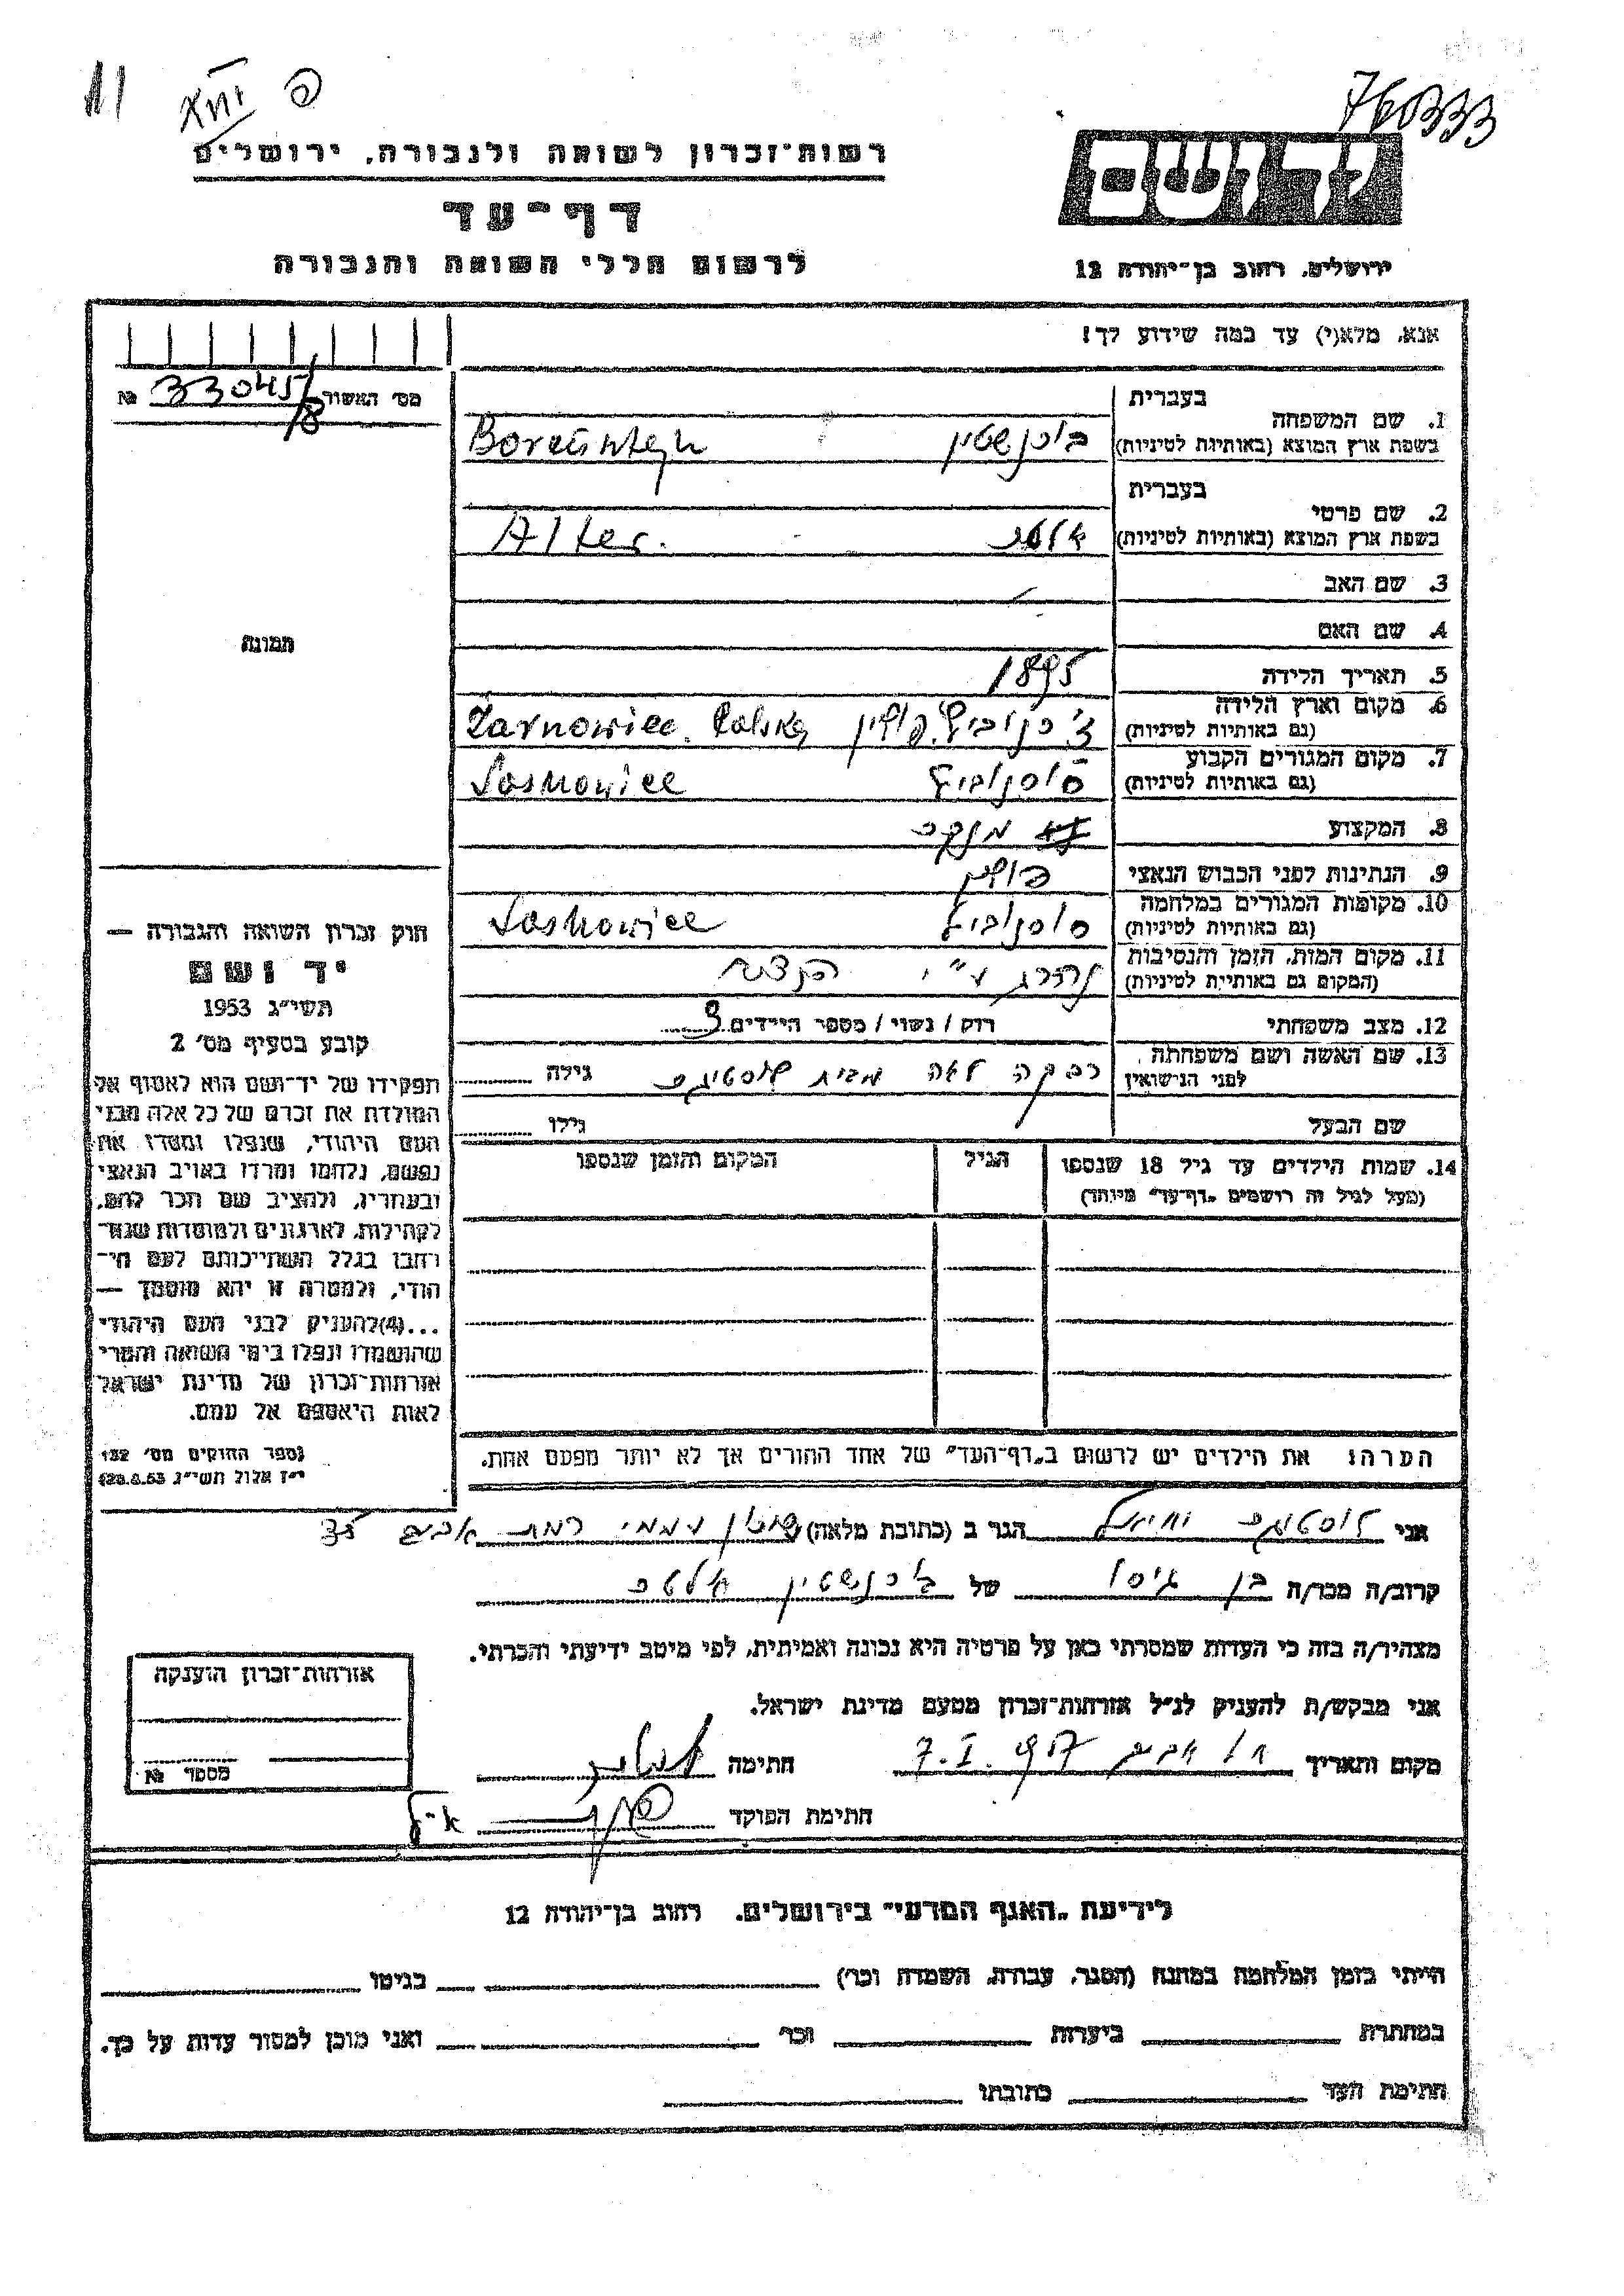 76033
רשות־זכרון לשואה ולגבורה, ירושלים
דף־עד
לרשום חללי השואה והגבורה
ירושלים, רחוב בן־יהודה 12
אנא, מלא(י) עד כמה שידוע לך!
מס' האשור 33045/8 №
בעברית
1. שם המשפחה
בשפת ארץ המוצא (באותיות לטיניות) בורנשטין
בעברית
2. שם פרטי
בשפת ארץ המוצא (באותיות לטיניות) אלטר Alter.
3. שם האב
4. שם האם
5. תאריך הלידה 1895
6. מקום וארץ הלידה
(גם באותיות לטיניות) ז'רנוביץ פולין Żarnowiec. Polska
7. מקום המגורים הקבוע
(גם באותיות לטיניות) סוסנוביץ Sosnowiec
8. המקצוע
9. הנתינות לפני הכבוש הנאצי פולין
10. מקומות המגורים במלחמה
(גם באותיות לטיניות) סוסנוביץ Sosnowiec
11. מקום המות, הזמן והנסיבות
(המקום גם באותיות לטיניות) נהרג ע"י
12. מצב משפחתי רוק / נשוי / מספר הילדים 3
13. שם האשה ושם משפחתה
לפני הנישואין רבקה לאה מבית גילה
שם הבעל גילו
14. שמות הילדים עד גיל 18 שנספו
(מעל לגיל זה רושמים „דף־עד" מיוחד)
הגיל
המקום והזמן שנספו
הערה: את הילדים יש לרשום ב„דף־העד" של אחד ההורים אך לא יותר מפעם אחת.
תמונה
חוק זכרון השואה והגבורה —
יד ושם
תשי"ג 1953
קובע בסעיף מס' 2
תפקידו של יד־ושם הוא לאסוף אל
המולדת את זכרם של כל אלה מבני
העם היהודי, שנפלו ומסרו את
נפשם, נלחמו ומרדו באויב הנאצי
ובעוזריו, ולהציב שם וזכר להם,
לקהילות, לארגונים ולמוסדות שנח־
רבו בגלל השתייכותם לעם הי־
הודי, ולמטרה זו יהא מוסמך —
...(4)להעניק לבני העם היהודי
שהושמדו ונפלו בימי השואה והמרי
אזרחות־זכרון של מדינת ישראל
לאות היאספם אל עמם.
(ספר החוקים מס' 132
י"ז אלול תשי"ג 28.8.53)
אני הגר ב (כתובת מלאה) שיכון עממי רמת אביב
קרוב/ה מכר/ה בן גיסו של בורנשטין אלטר
מצהיר/ה בזה כי העדות שמסרתי כאן על פרטיה היא נכונה ואמיתית, לפי מיטב ידיעתי והכרתי.
אני מבקש/ת להעניק לנ"ל אזרחות־זכרון מטעם מדינת ישראל.
מקום ותאריך תל אביב 7.I.957 חתימה
חתימת הפוקד
אזרחות־זכרון הוענקה
מספר №
לידיעת „האגף המדעי" בירושלים. רחוב בן־יהודה 12
הייתי בזמן המלחמה במחנה (הסגר, עבודה, השמדה וכו') בגיטו
במחתרת ביערות וכו' ואני מוכן למסור עדות על כך.
חתימת העד כתובתו